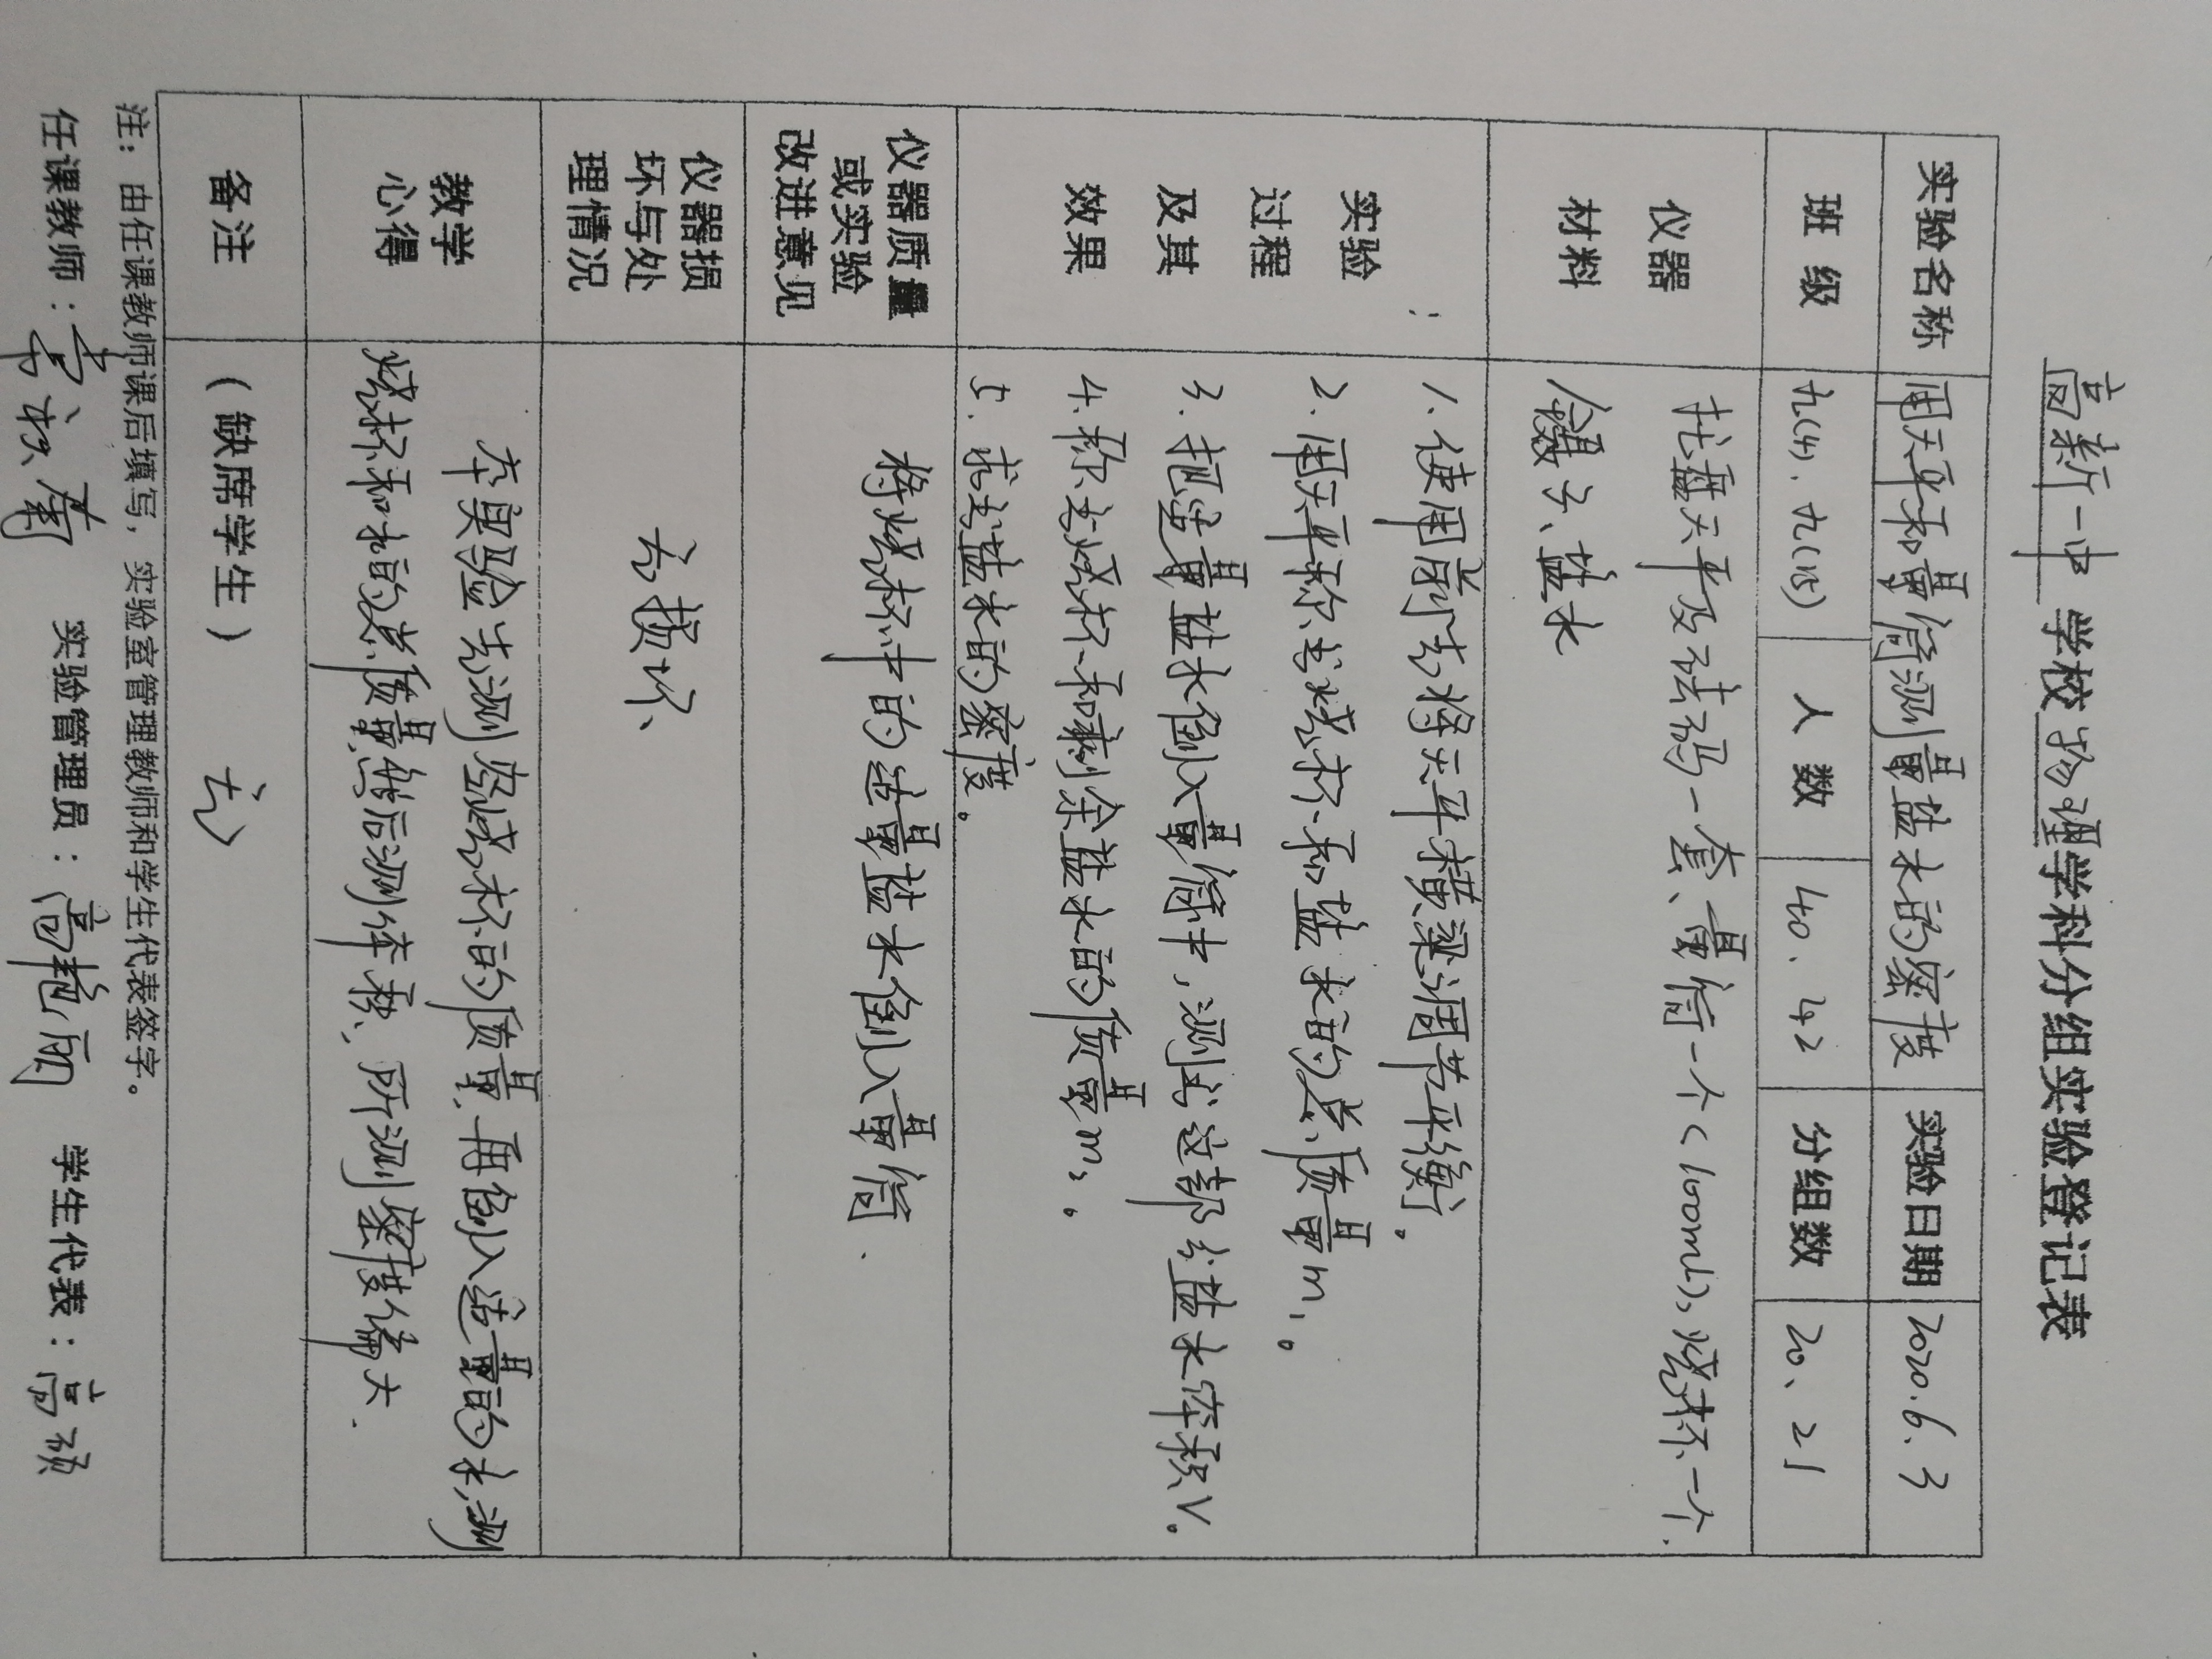 高新一中 学校 物理 学科分组实验登记表
实验名称 用天平和量筒测量盐水的密度 实验日期 2020.6.3
班 级 九(4)、九(18) 人 数 40、42 分组数 20、21
仪器
材料
托盘天平及砝码一套、量筒一个(100ml)、烧杯一个.
镊子、盐水
实验
过程
及其
效果
1、使用前先将天平横梁调节平衡。
2、用天平称出烧杯和盐水的总质量m₁。
3、把适量盐水倒入量筒中,测出这部分盐水体积V。
4、称出烧杯和剩余盐水的质量m₂。
5、求出盐水的密度。
仪器质量
或实验
改进意见
将烧杯中的适量盐水倒入量筒.
仪器损
坏与处
理情况
无损坏、
教学
心得
本实验先测空烧杯的质量,再倒入适量的水,测
烧杯和水的总质量,然后测体积、所测密度偏大.
备注
(缺席学生) 无
注:由任课教师课后填写,实验室管理教师和学生代表签字。
任课教师: 实验管理员:高艳丽 学生代表:高